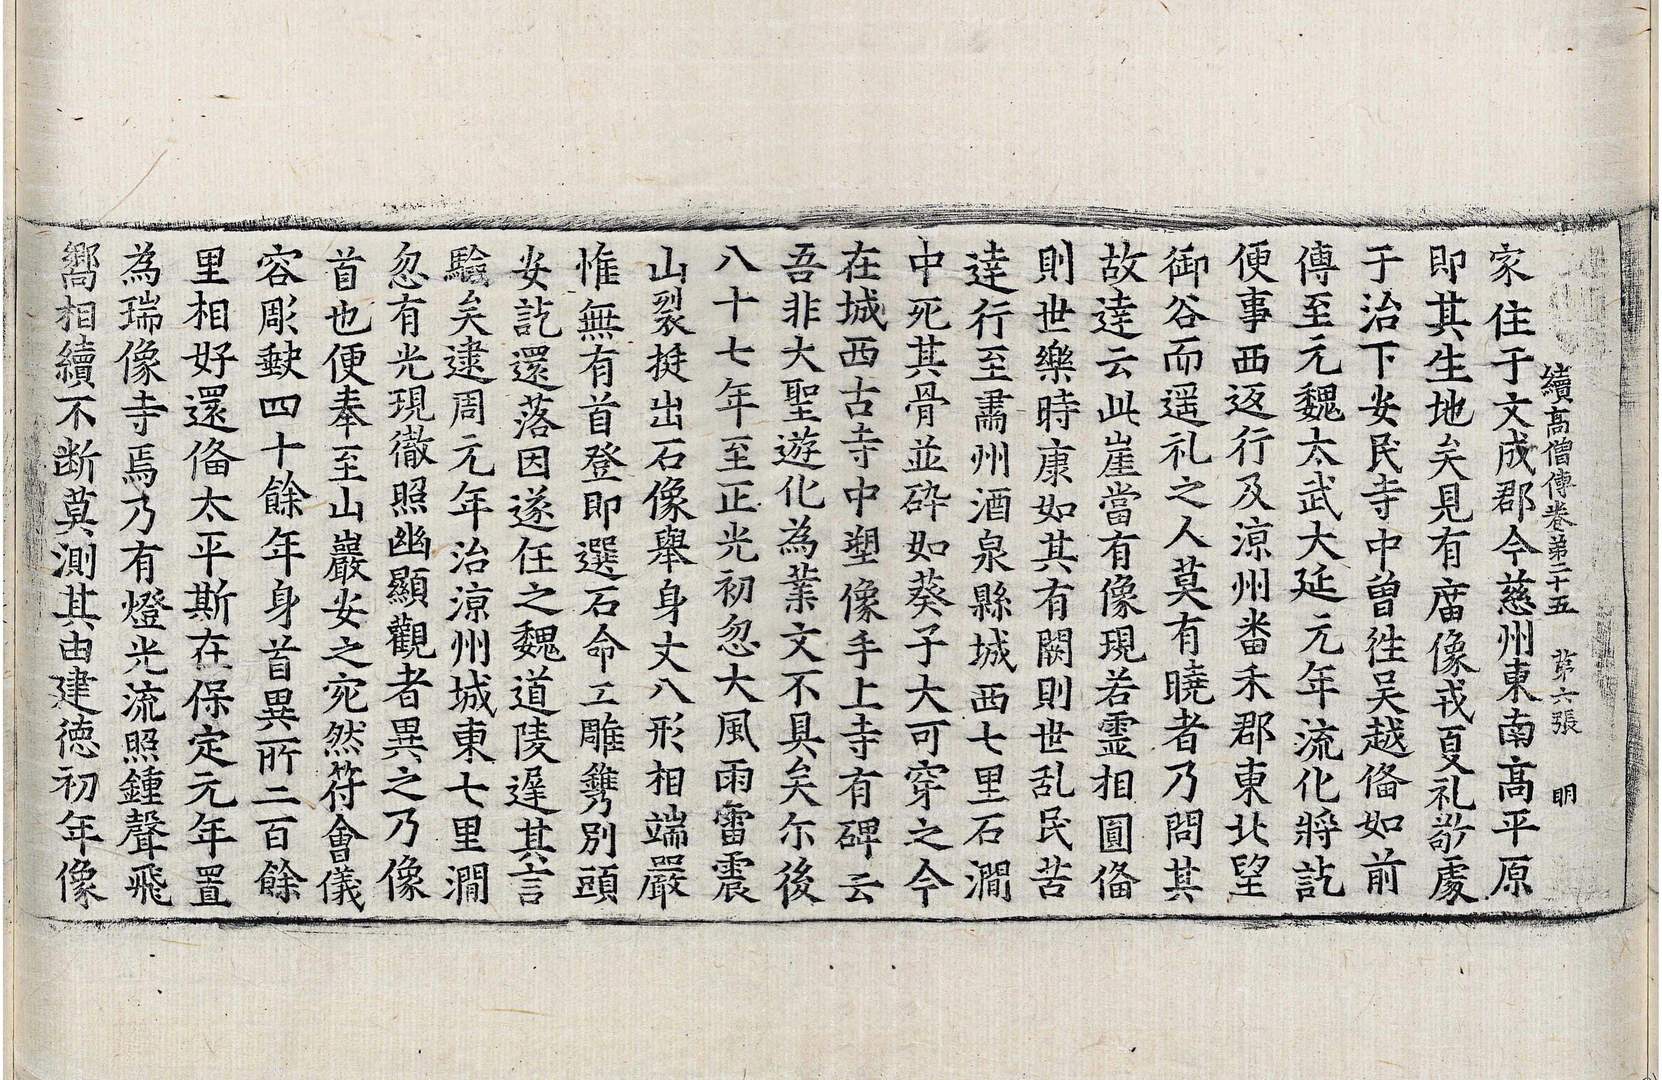 續高僧傳卷第二十五 第六張 明
家住于文成郡今慈州東南高平原
即其生地矣見有廟像戎夏礼敬處
于治下安民寺中曾徃吴越俻如前
傳至元魏太武大延元年流化將訖
便事西返行及涼州番禾郡東北望
御谷而遥礼之人莫有曉者乃問其
故達云此崖當有像現若霊相圓俻
則世樂時康如其有闕則世乱民苦
達行至肅州酒泉縣城西七里石澗
中死其骨並碎如葵子大可穿之今
在城西古寺中塑像手上寺有碑云
吾非大聖遊化為業文不具矣尓後
八十七年至正光初忽大風雨雷震
山裂挺出石像舉身丈八形相端嚴
惟無有首登即選石命工雕鐫別頭
安訖還落因遂任之魏道陵遲其言
驗矣逮周元年治涼州城東七里澗
忽有光現徹照幽顯觀者異之乃像
首也便奉至山巖安之宛然符會儀
容彫𡙇四十餘年身首異所二百餘
里相好還俻太平斯在保定元年置
為瑞像寺焉乃有燈光流照鍾聲飛
嚮相續不断莫測其由建徳初年像